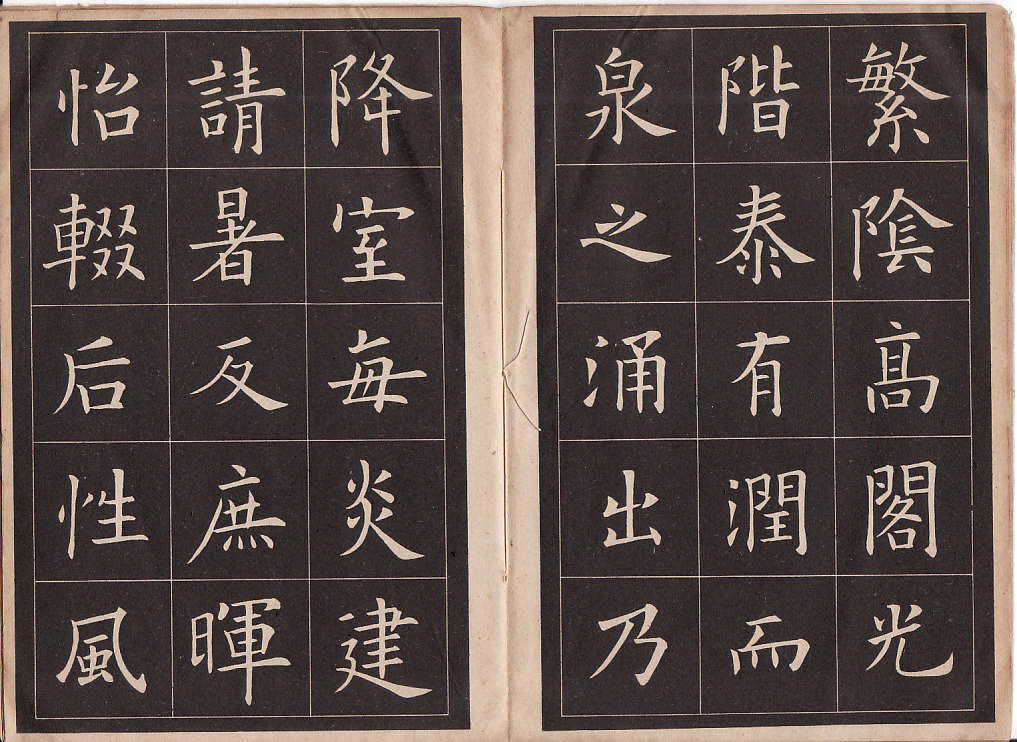 繁陰髙閣光
階泰有潤而
泉之涌出乃
降室毎炎建
請暑反庶暉
怡輟后性風